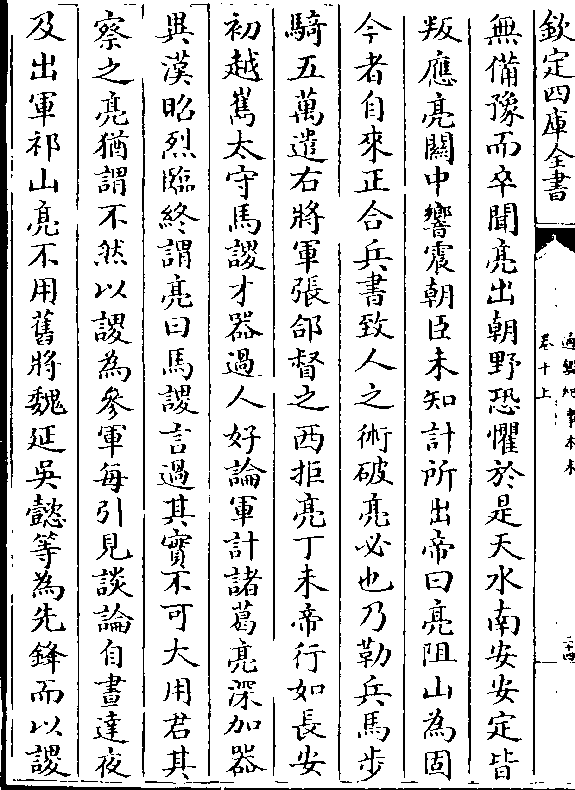 欽定四庫全書
通鑑紀事本末
卷十上
二十四
無備豫而卒聞亮出朝野恐懼於是天水南安安定皆
叛應亮關中響震朝臣未知計所出帝曰亮阻山為固
今者自來正合兵書致人之術破亮必也乃勒兵馬步
騎五萬遣右將軍張郃督之西拒亮丁未帝行如長安
初越嶲太守馬謖才器過人好論軍計諸葛亮深加器
異漢昭烈臨終謂亮曰馬謖言過其實不可大用君其
察之亮猶謂不然以謖為參軍每引見談論自晝達夜
及出軍祁山亮不用舊將魏延吳懿等為先鋒而以謖